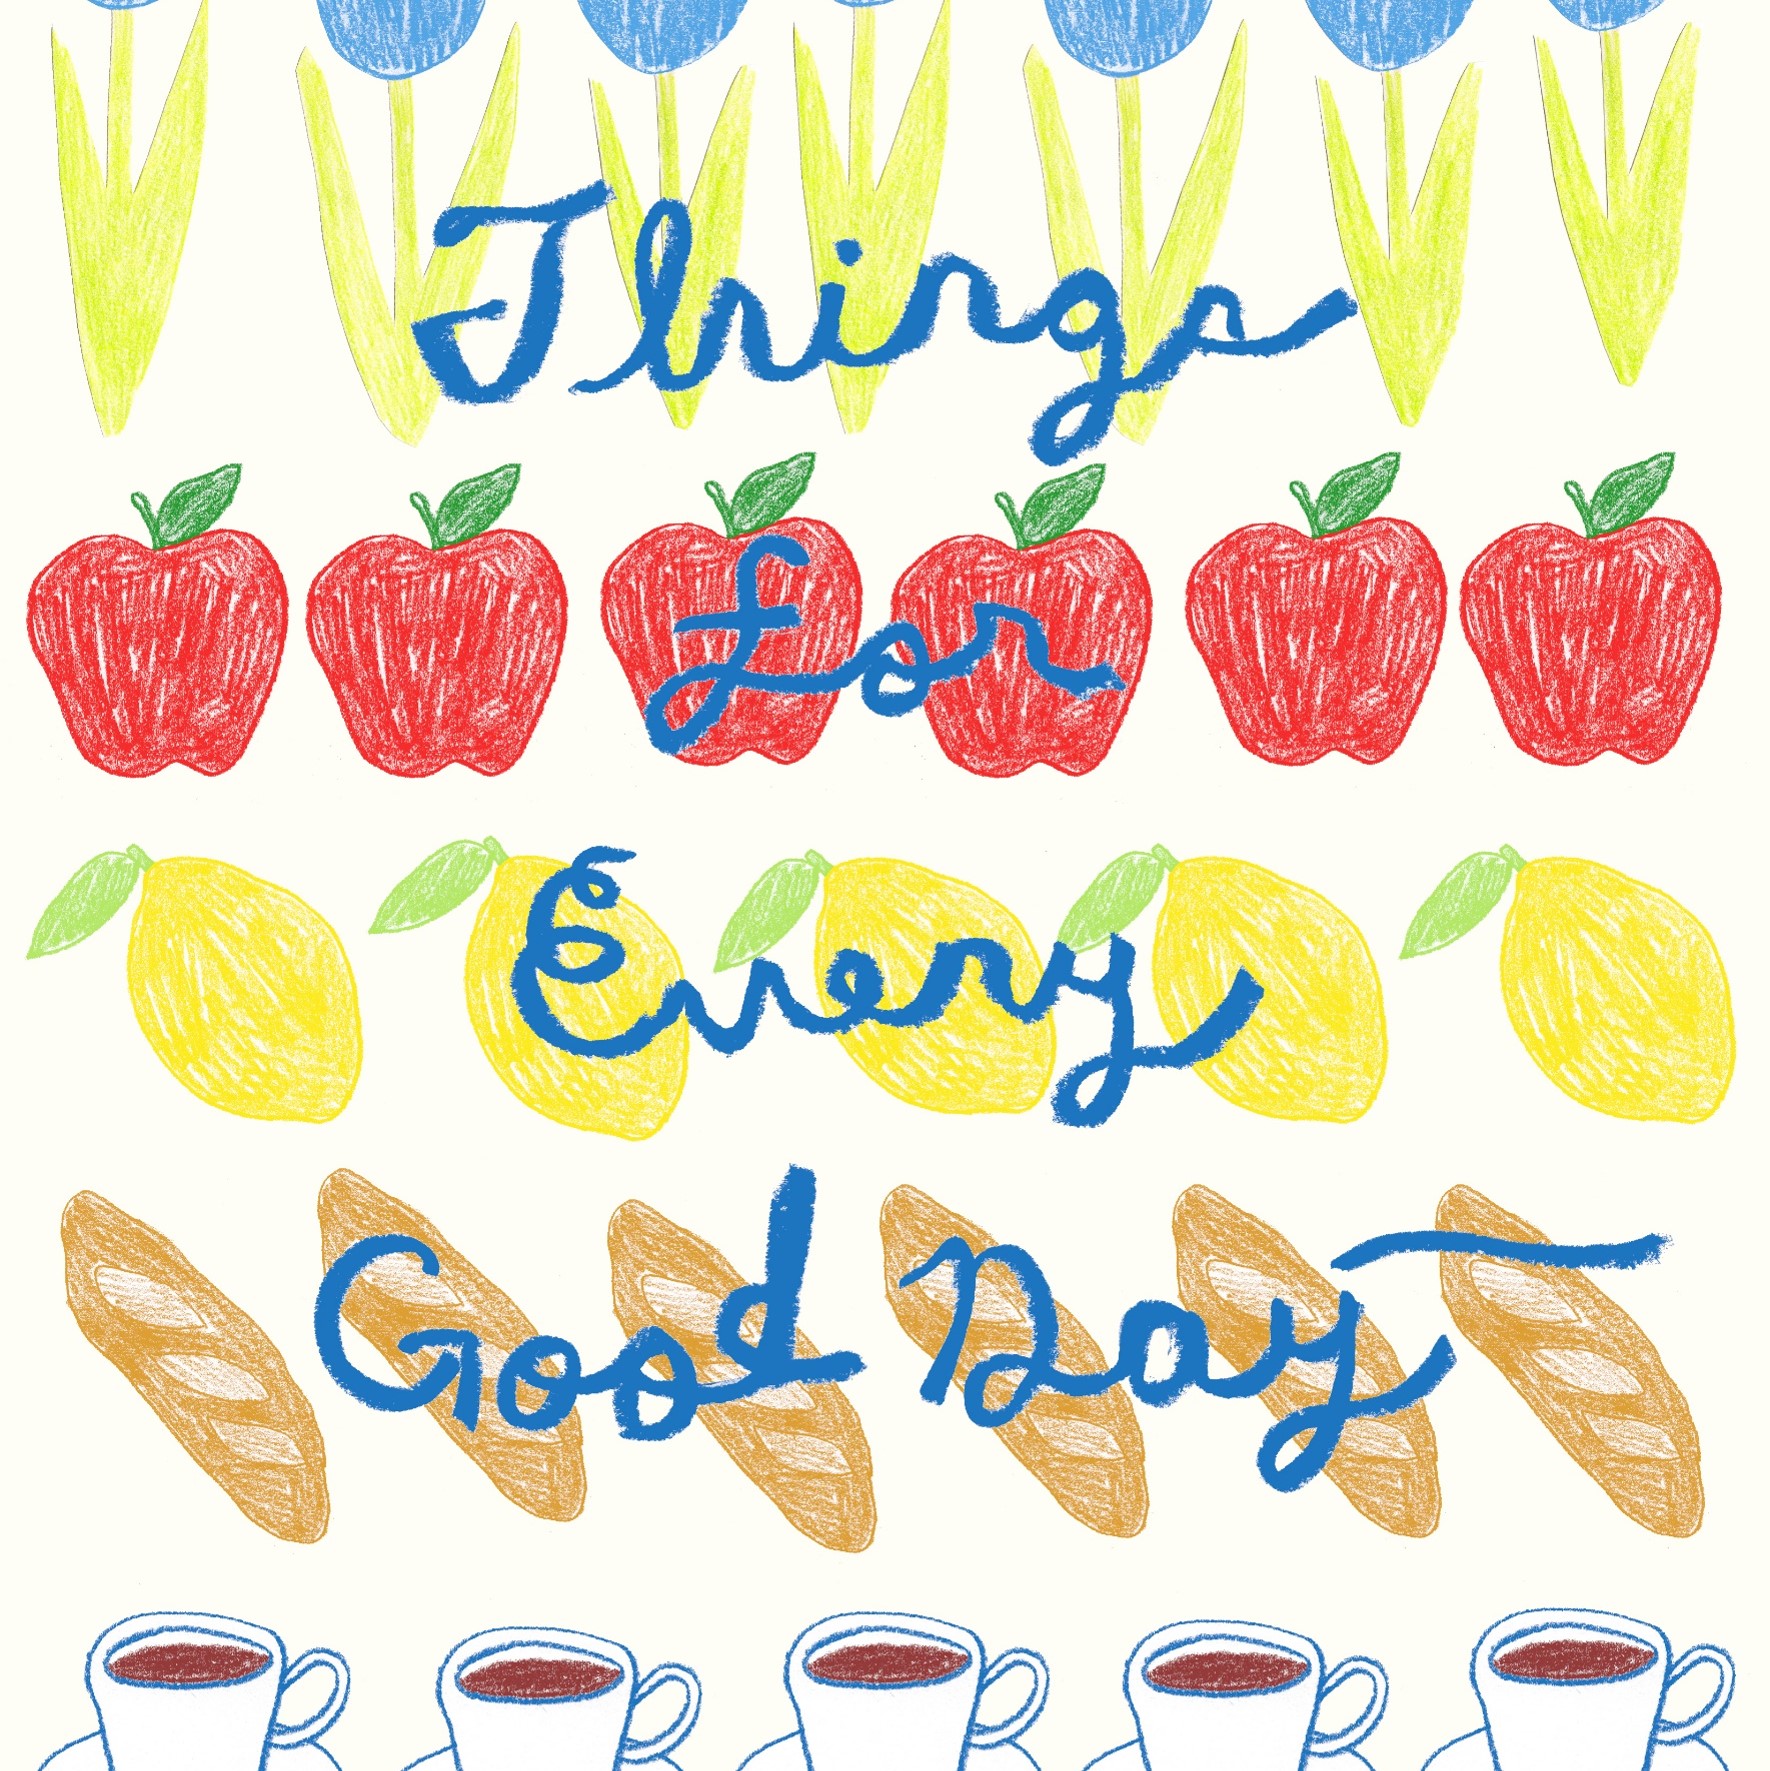 Things
for
Every
Good Day